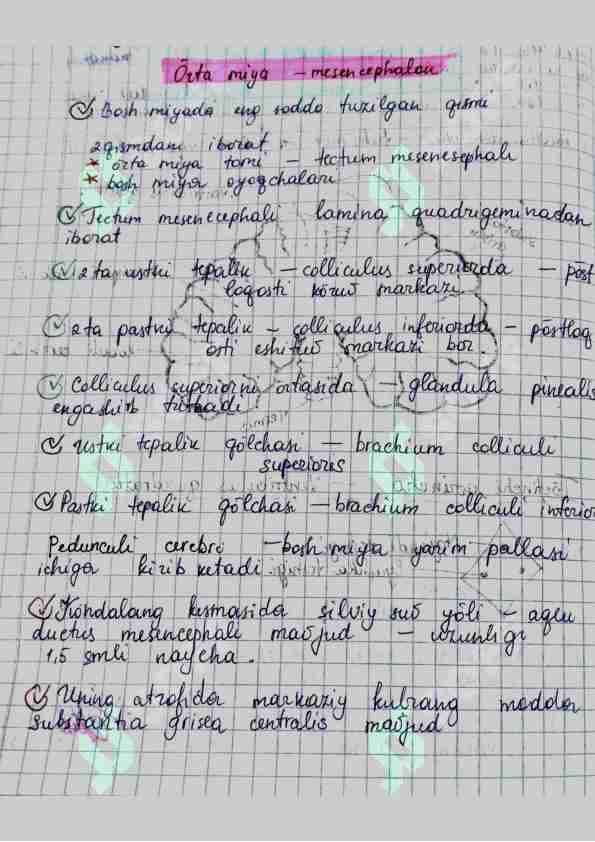 Ōrta miya – mesencephalon
Bosh miyada eng sodda tuzilgan qismi
2 qismdan iborat
ōrta miya tomi – tectum mesenesephali
bosh miya oyoqchalari
Tectum mesencephali lamina quadrigeminadan
iborat
2 ta ustki tepalik – colliculus superiorda – pōst
loqosti kōruv markazi
2ta pastki tepalik – colliculus inferiorda – pōstloq
osti eshituv markazi bor.
Colliculus superiorni ortasida – glandula pinealis
engashib turadi
ustki tepalik qōlchasi – brachium colliculi
superiores
Pastki tepalik qōlchasi – brachium colliculi inferior
Pedunculi cerebri – bosh miya yarim pallasi
ichiga kirib ketadi
Kōndalang kesmasida silviy suv yōli – aque
ductus mesencephali mavjud – uzunligi
1,5 smli naycha.
Uning atrofida markaziy kulrang modda
substantia grisea centralis mavjud